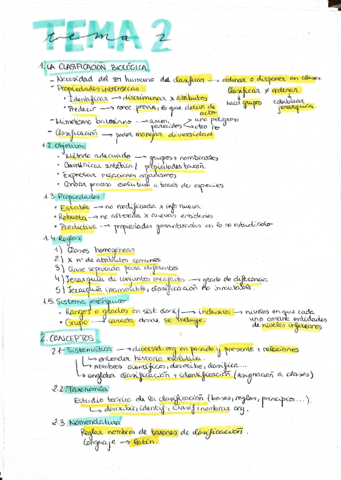 TEMA 2
tema 2
1. LA CLASIFICACIÓN BIOLÓGICA
- Necesidad del ser humano de clasificar → ordenar o disponer en clases
- Propiedades intrínsecas:
Clasificar ≠ ordenar
· Identificar → discriminar x atributos
hacer grupos
establecer jerarquía
· Predecir → conoc previo,
- Mimetismo batesiano → comparten
uno peligroso
otro no
- Clasificación → poder manejar diversidad
1.2. Objetivos
· Método adecuado → grupos + nombrarlos
· Expresar relaciones organismos
· Contar proceso evolutivo a través de especies
1.3. Propiedades
· Estable → no modificada x info nueva
· Robusta → no alterada x nuevas entidades
· Productiva → propiedades generalizadas en lo no estudiado
1.4. Reglas
1) Clases homogéneas
2) x nº de atributos comunes
3) Clase separada para diferentes
4) Jerarquía de conjuntos encajados → grado de diferencia
5) Jerarquía inamovible, clasificación no inmutable
1.5. Sistema jerárquico
· Rangos o grados en sist. docs → inclusivos → niveles en que cada
uno contiene entidades
de niveles inferiores
· Grupo → conjunto donde se incluye
2. CONCEPTOS
2.1. Sistemática → diversid. org en pasado y presente + relaciones
↳ entender historia evolutiva
↳ nombres científicos, describe, clasifica...
↳ engloba clasificación + identificación (asignación a clases)
2.2. Taxonomía
Estudio teórico de la clasificación (bases, reglas, principios...)
↳ describir, identif, clasif, nombrar org.
2.3. Nomenclatura
Reglar nombres de taxones de clasificación.
Lenguaje → latín.